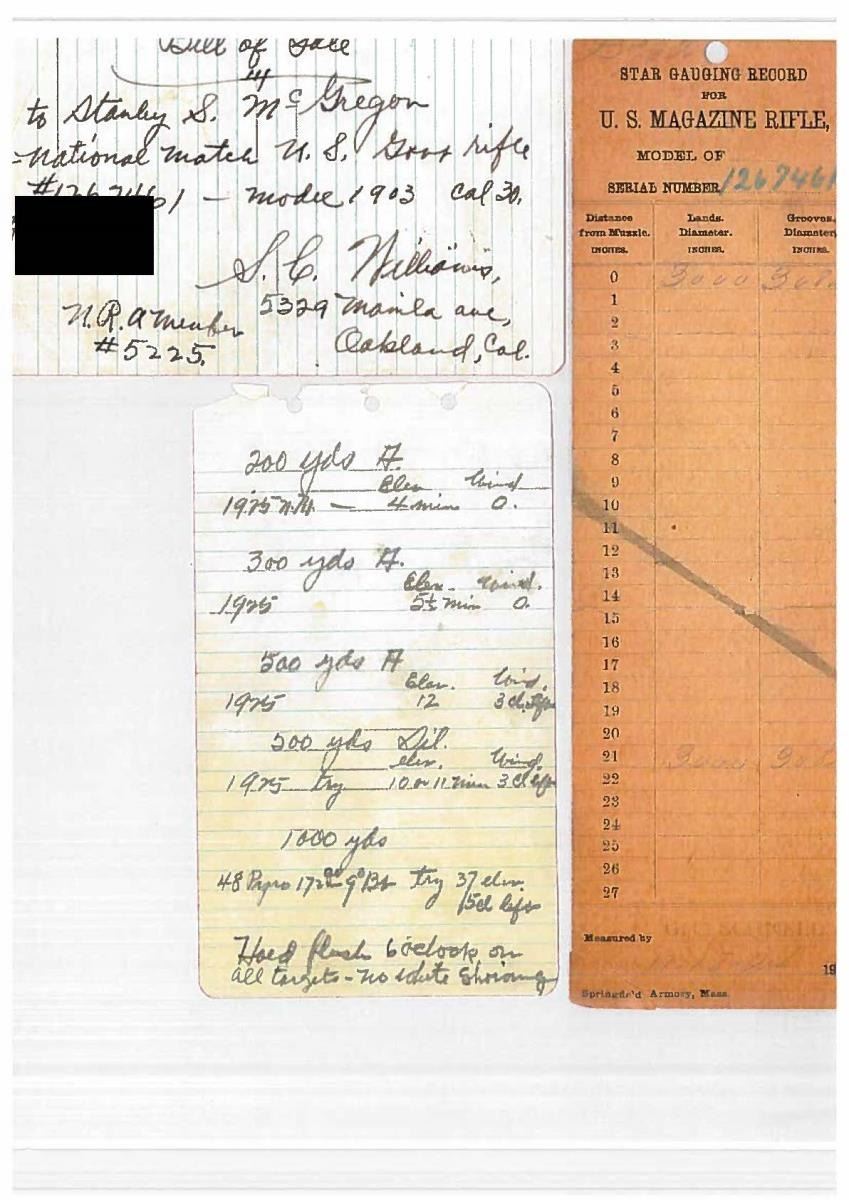 Bill of Sale
to Stanley S. McGregor
National Match U. S. Govt rifle
#1267461 - Model 1903 Cal 30.
S. C. Williams,
5329 Manila ave,
Oakland, Cal.
N.R.A Member
#5225.
200 yds A.
Elev Wind
1925 N.M. — 4 min 0.
300 yds A.
Elev. Wind.
1925 5½ min 0.
500 yds A
Elev. Wind.
1925 12 3 cl. left
500 yds Sil.
elev. Wind.
1925 try 10 or 11 min 3 cl left
1000 yds
48 Pyro 172 gr 9° Bt try 37 elev.
15 cl left
Hold flush 6 o'clock on
all targets - no white showing
STAR GAUGING RECORD
FOR
U. S. MAGAZINE RIFLE,
MODEL OF
SERIAL NUMBER 1267461
Distance from Muzzle. INCHES.
Lands. Diameter. INCHES.
Grooves. Diameter, INCHES.
0 3000
1
2
3
4
5
6
7
8
9
10
11
12
13
14
15
16
17
18
19
20
21 3000
22
23
24
25
26
27
Measured by
19
Springfield Armory, Mass.